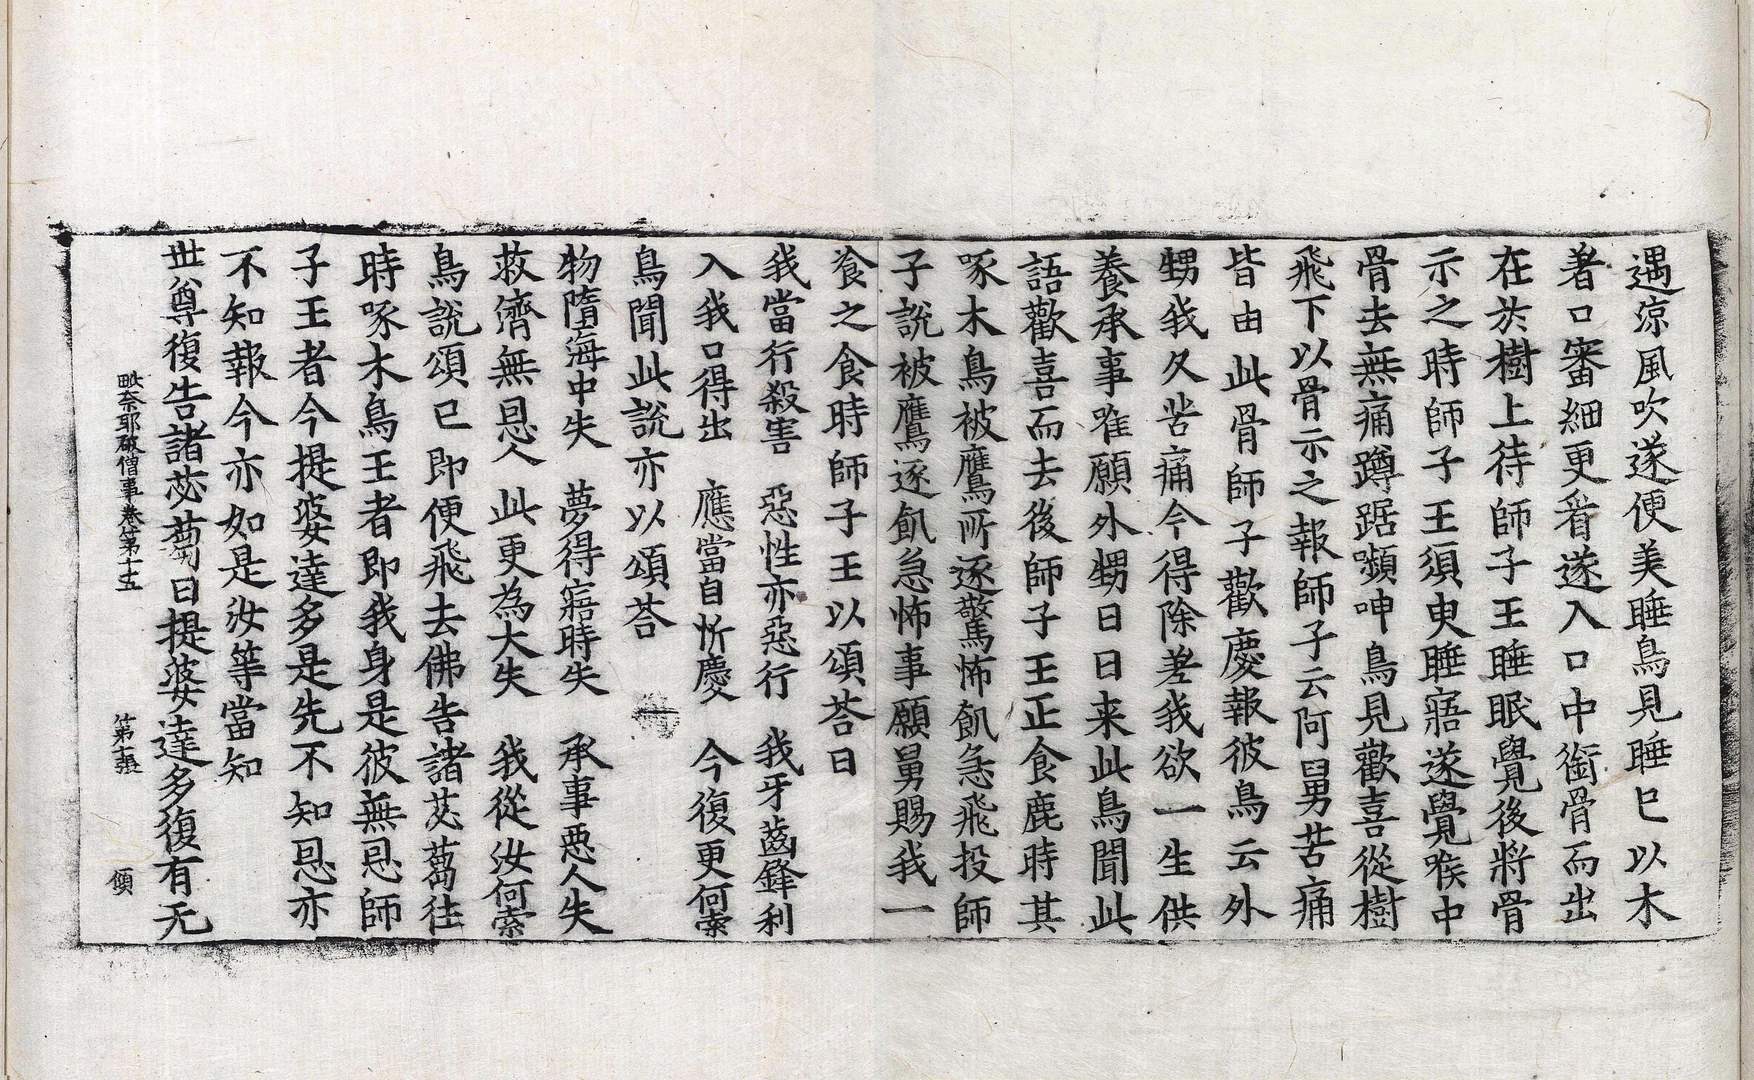 遇涼風吹遂便美睡鳥見睡已以木
著口審細更看遂入口中銜骨而出
在於樹上待師子王睡眠覺後將骨
示之時師子王須臾睡寤遂覺喉中
骨去無痛蹲踞嚬呻鳥見歡喜從樹
飛下以骨示之報師子云阿舅苦痛
皆由此骨師子歡慶報彼鳥云外
甥我久苦痛今得除差我欲一生供
養承事唯願外甥日日来此鳥聞此
語歡喜而去後師子王正食鹿時其
啄木鳥被鷹所逐驚怖飢急飛投師
子說被鷹逐飢急怖事願舅賜我一
飡之食時師子王以頌荅曰
我當行殺害　惡性亦惡行　我牙齒鋒利
入我口得出　應當自忻慶　今復更何索
鳥聞此說亦以頌荅
物墮海中失　夢得寤時失　承事惡人失
救濟無恩人　此更為大失　我從汝何索
鳥說頌已即便飛去佛告諸苾蒭往
時啄木鳥王者即我身是彼無恩師
子王者今提婆達多是先不知恩亦
不知報今亦如是汝等當知
世尊復告諸苾蒭曰提婆達多復有无
毗奈耶破僧事卷第十五　第十張　傾